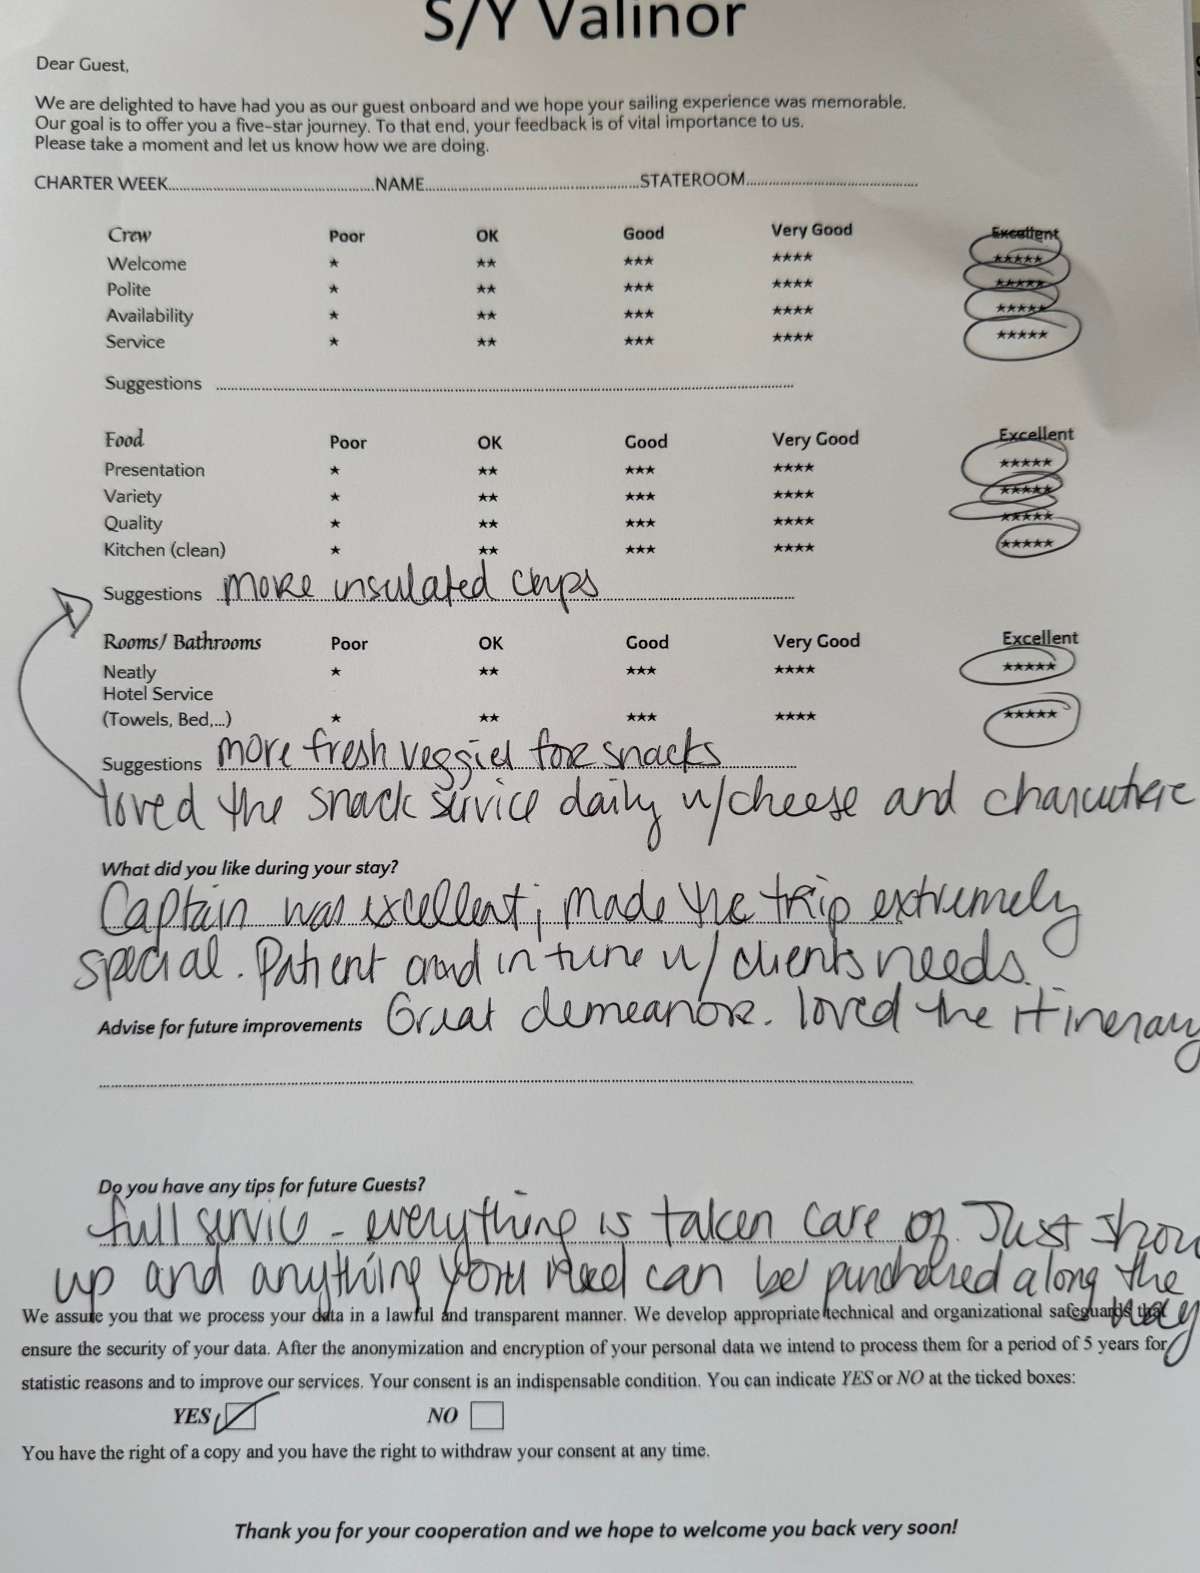 S/Y Valinor
Dear Guest,
We are delighted to have had you as our guest onboard and we hope your sailing experience was memorable.
Our goal is to offer you a five-star journey. To that end, your feedback is of vital importance to us.
Please take a moment and let us know how we are doing.
CHARTER WEEK............NAME............STATEROOM............
Crew Poor OK Good Very Good Excellent
Welcome ★ ★★ ★★★ ★★★★ ★★★★★
Polite ★ ★★ ★★★ ★★★★ ★★★★★
Availability ★ ★★ ★★★ ★★★★ ★★★★★
Service ★ ★★ ★★★ ★★★★ ★★★★★
Suggestions ............
Food Poor OK Good Very Good Excellent
Presentation ★ ★★ ★★★ ★★★★ ★★★★★
Variety ★ ★★ ★★★ ★★★★ ★★★★★
Quality ★ ★★ ★★★ ★★★★ ★★★★★
Kitchen (clean) ★ ★★ ★★★ ★★★★ ★★★★★
Suggestions more insulated cups
Rooms/ Bathrooms Poor OK Good Very Good Excellent
Neatly ★ ★★ ★★★ ★★★★ ★★★★★
Hotel Service
(Towels, Bed,...) ★ ★★ ★★★ ★★★★ ★★★★★
Suggestions more fresh veggies for snacks
loved the snack service daily w/cheese and charcuterie
What did you like during your stay?
Captain was excellent; made the trip extremely
special. Patient and in tune w/ clients needs.
Advise for future improvements Great demeanor. loved the itinerary
............
Do you have any tips for future Guests?
full service - everything is taken care of. Just show
up and anything you need can be purchased along the
way
We assure you that we process your data in a lawful and transparent manner. We develop appropriate technical and organizational safeguards that
ensure the security of your data. After the anonymization and encryption of your personal data we intend to process them for a period of 5 years for
statistic reasons and to improve our services. Your consent is an indispensable condition. You can indicate YES or NO at the ticked boxes:
YES NO
You have the right of a copy and you have the right to withdraw your consent at any time.
Thank you for your cooperation and we hope to welcome you back very soon!